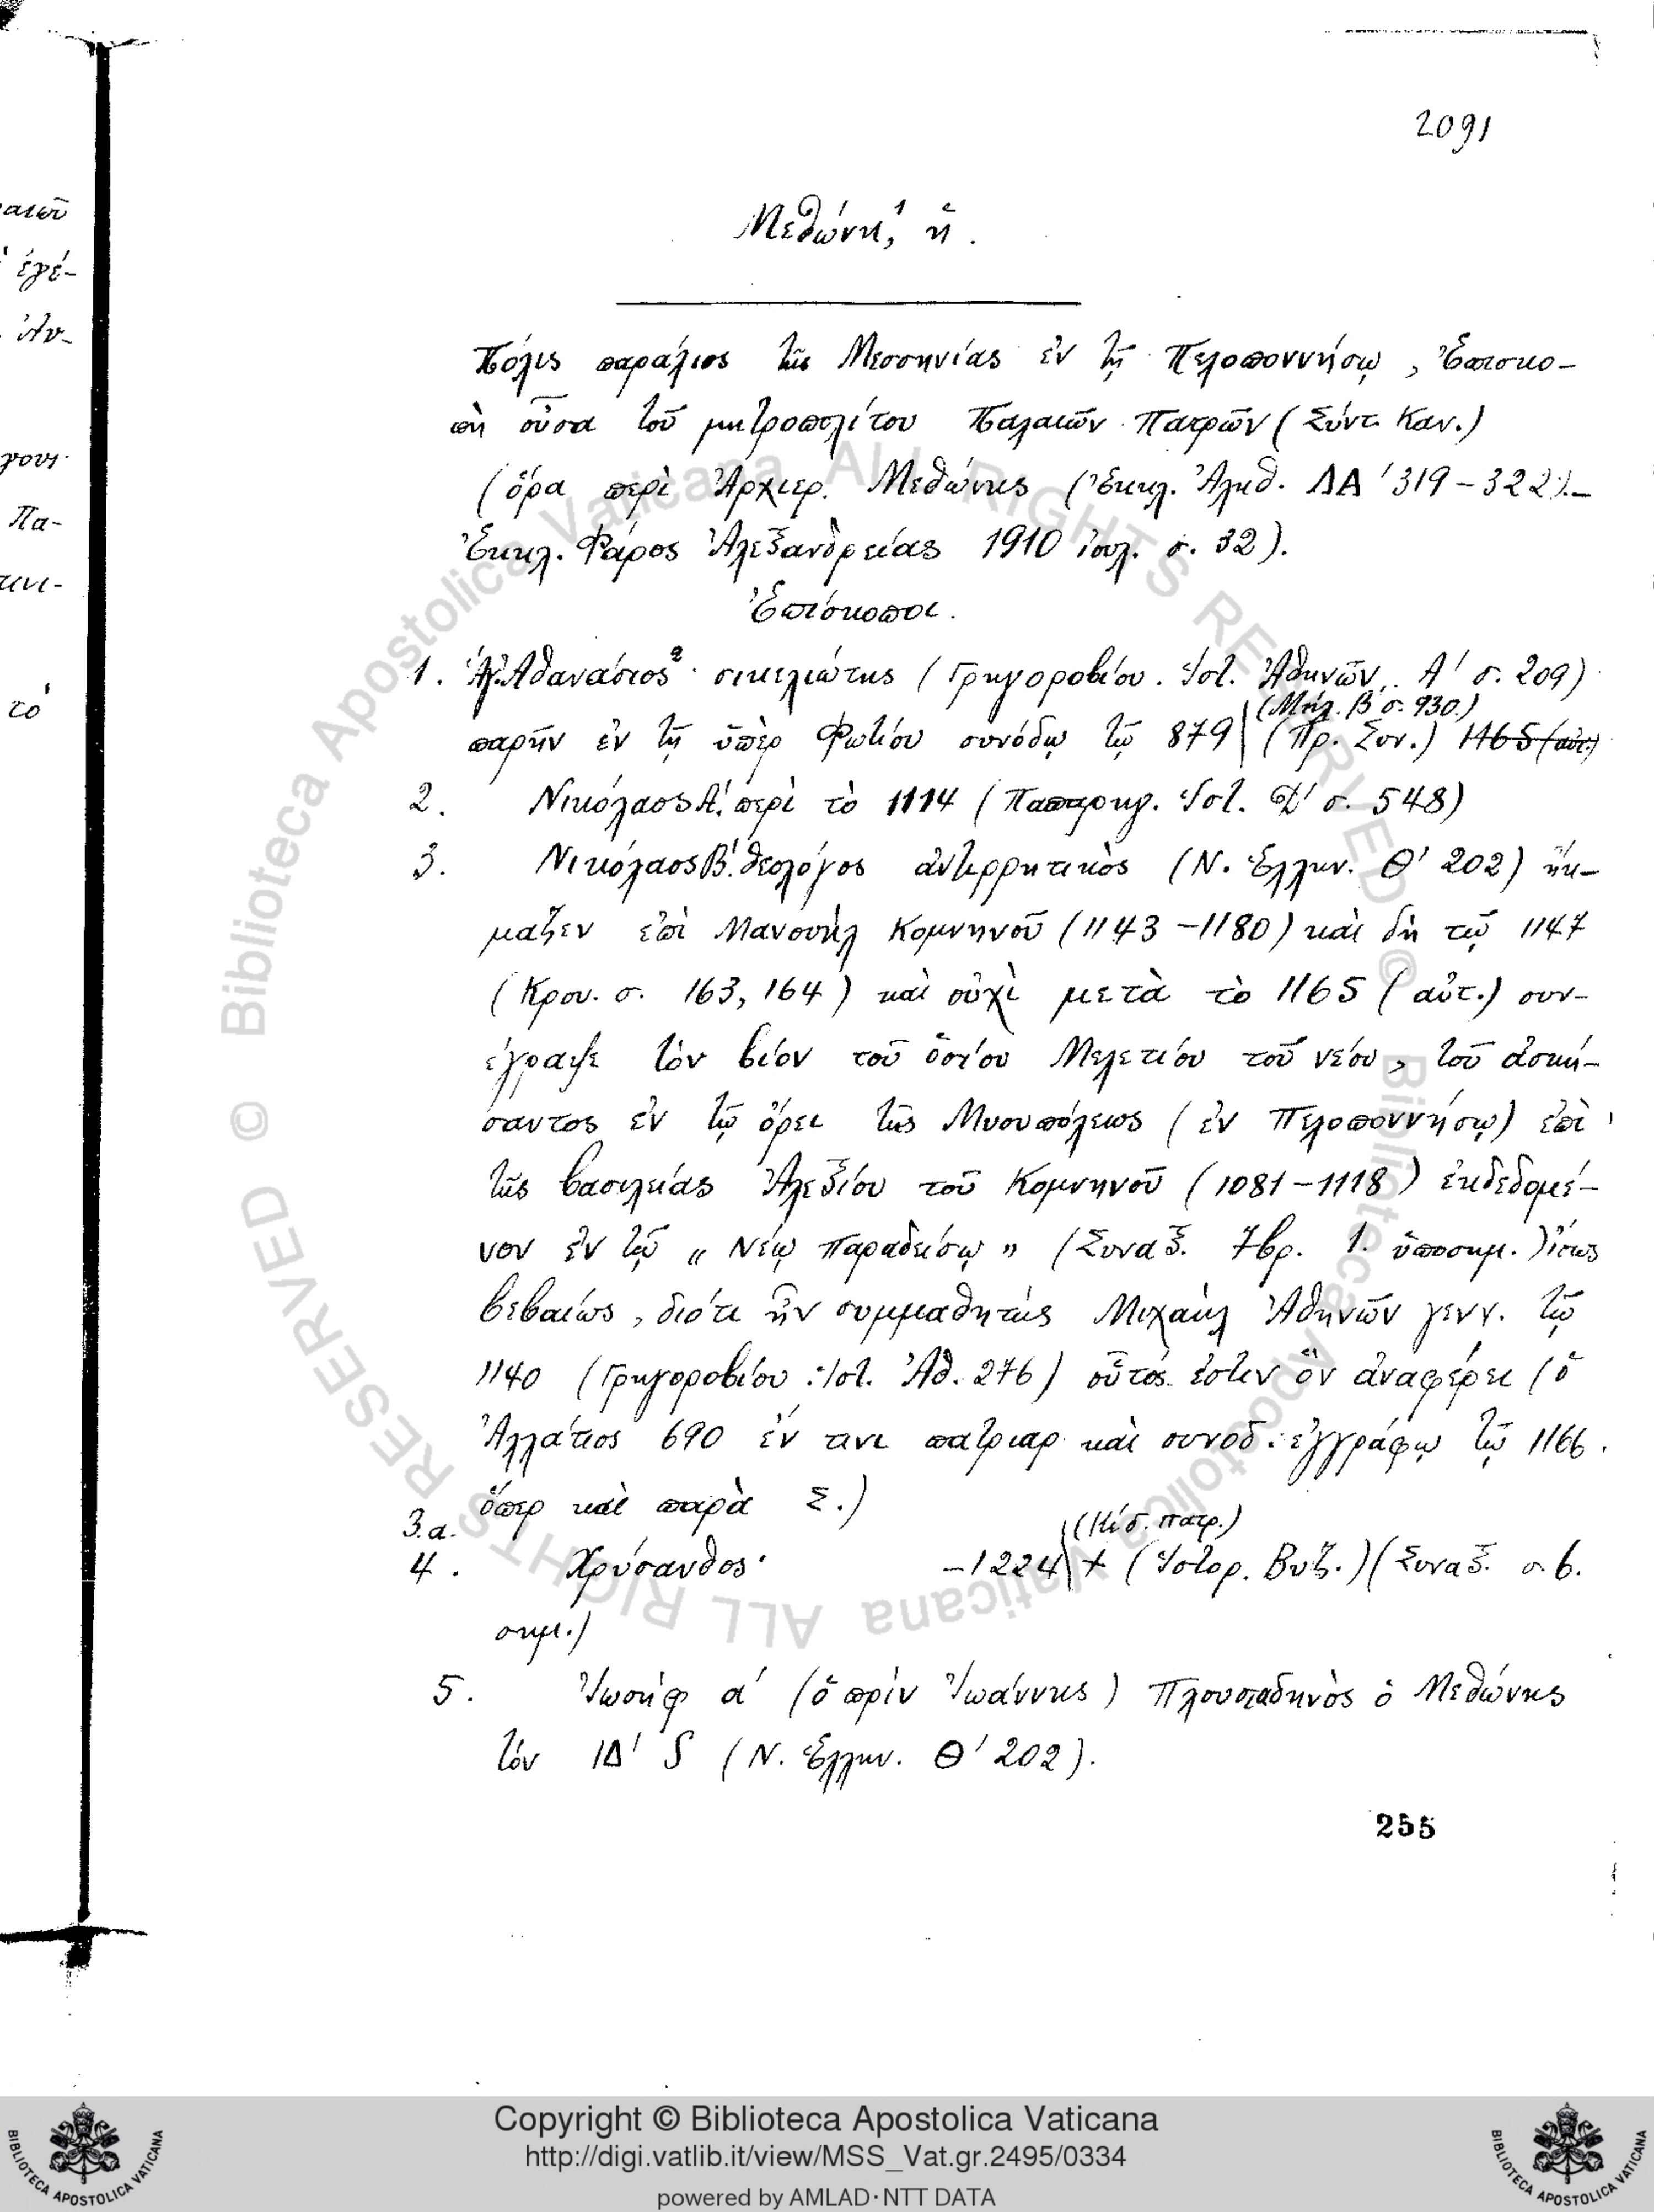 2091
Μεθώνη,¹ ἡ.
Πόλις παράλιος τῆς Μεσσηνίας ἐν τῇ Πελοποννήσῳ, Ἐπισκο-
πὴ οὖσα τοῦ μητροπολίτου Παλαιῶν Πατρῶν (Σύντ. Καν.)
(ὅρα περὶ Ἀρχιερ. Μεθώνης (Ἐκκλ. Ἀληθ. ΛΑ΄ 319-322).-
Ἐκκλ. Φάρος Ἀλεξανδρείας 1910 ἰουλ. σ. 32).
Ἐπίσκοποι.
1. Ἁγ. Ἀθανάσιος² σικελιώτης (Γρηγοροβίου. Ἱστ. Ἀθηνῶν, Α΄ σ. 209)
(Μήλ. Β σ. 930.)
παρῆν ἐν τῇ ὑπὲρ Φωτίου συνόδῳ τῷ 879 (Πρ. Συν.) 1165 (αὐτ.)
2. Νικόλαος Α΄. περὶ τὸ 1114 (Παπαρηγ. Ἱστ. Δ΄ σ. 548)
3. Νικόλαος Β΄. θεολόγος ἀντιρρητικὸς (Ν. Ἑλλην. Θ΄ 202) ἤκ-
μαζεν ἐπὶ Μανουὴλ Κομνηνοῦ (1143-1180) καὶ δὴ τῷ 1147
(Κρου. σ. 163, 164) καὶ οὐχὶ μετὰ τὸ 1165 (αὐτ.) συν-
έγραψε τὸν βίον τοῦ ὁσίου Μελετίου τοῦ νέου, τοῦ ἀσκή-
σαντος ἐν τῷ ὄρει τῆς Μυουπόλεως (ἐν Πελοποννήσῳ) ἐπὶ
τῆς βασιλείας Ἀλεξίου τοῦ Κομνηνοῦ (1081-1118) ἐκδεδομέ-
νον ἐν τῷ „ Νέῳ Παραδείσῳ " (Συναξ. 7βρ. 1. ὑποσημ.) ἴσως
βεβαίως, διότι ἦν συμμαθητὴς Μιχαὴλ Ἀθηνῶν γενν. τῷ
1140 (Γρηγοροβίου Ἱστ. Ἀθ. 276) οὗτός ἐστιν ὃν ἀναφέρει (ὁ
Ἀλλάτιος 690 ἔν τινι πατριαρ. καὶ συνοδ. ἐγγράφῳ τῷ 1166.
ὅπερ καὶ παρὰ Σ.)
3.α.
(Κώδ. πατρ.)
4. Χρύσανθος· -1224 + (Ἱστορ. Βυζ.) (Συναξ. σ. β.
σημ.)
5. Ἰωσὴφ α΄ (ὁ πρὶν Ἰωάννης) Πλουσιαδηνὸς ὁ Μεθώνης
τὸν ΙΔ΄ S (Ν. Ἑλλην. Θ΄ 202).
255
ατῶν
ἐγέ-
Ἀν-
Πα-
τὸ
Copyright © Biblioteca Apostolica Vaticana
http://digi.vatlib.it/view/MSS_Vat.gr.2495/0334
powered by AMLAD·NTT DATA
BIBLIOTECA APOSTOLICA VATICANA
BIBLIOTECA APOSTOLICA VATICANA
© Biblioteca Apostolica Vaticana ALL RIGHTS RESERVED © Biblioteca Apostolica Vaticana ALL RIGHTS RESERVED